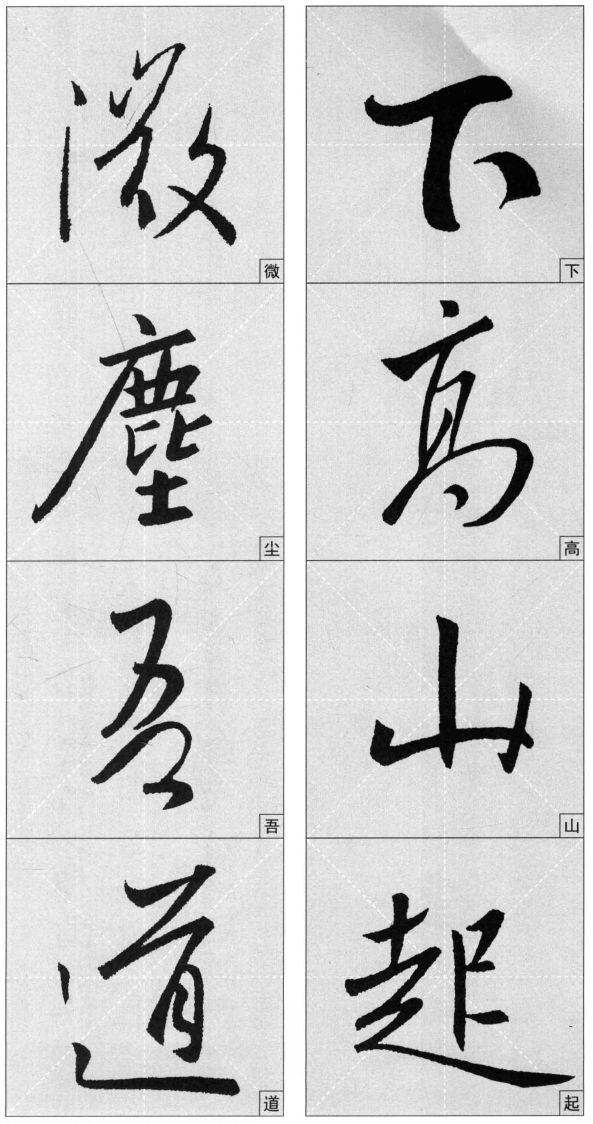 下高山起
下
高
山
起
微塵吾道
微
尘
吾
道